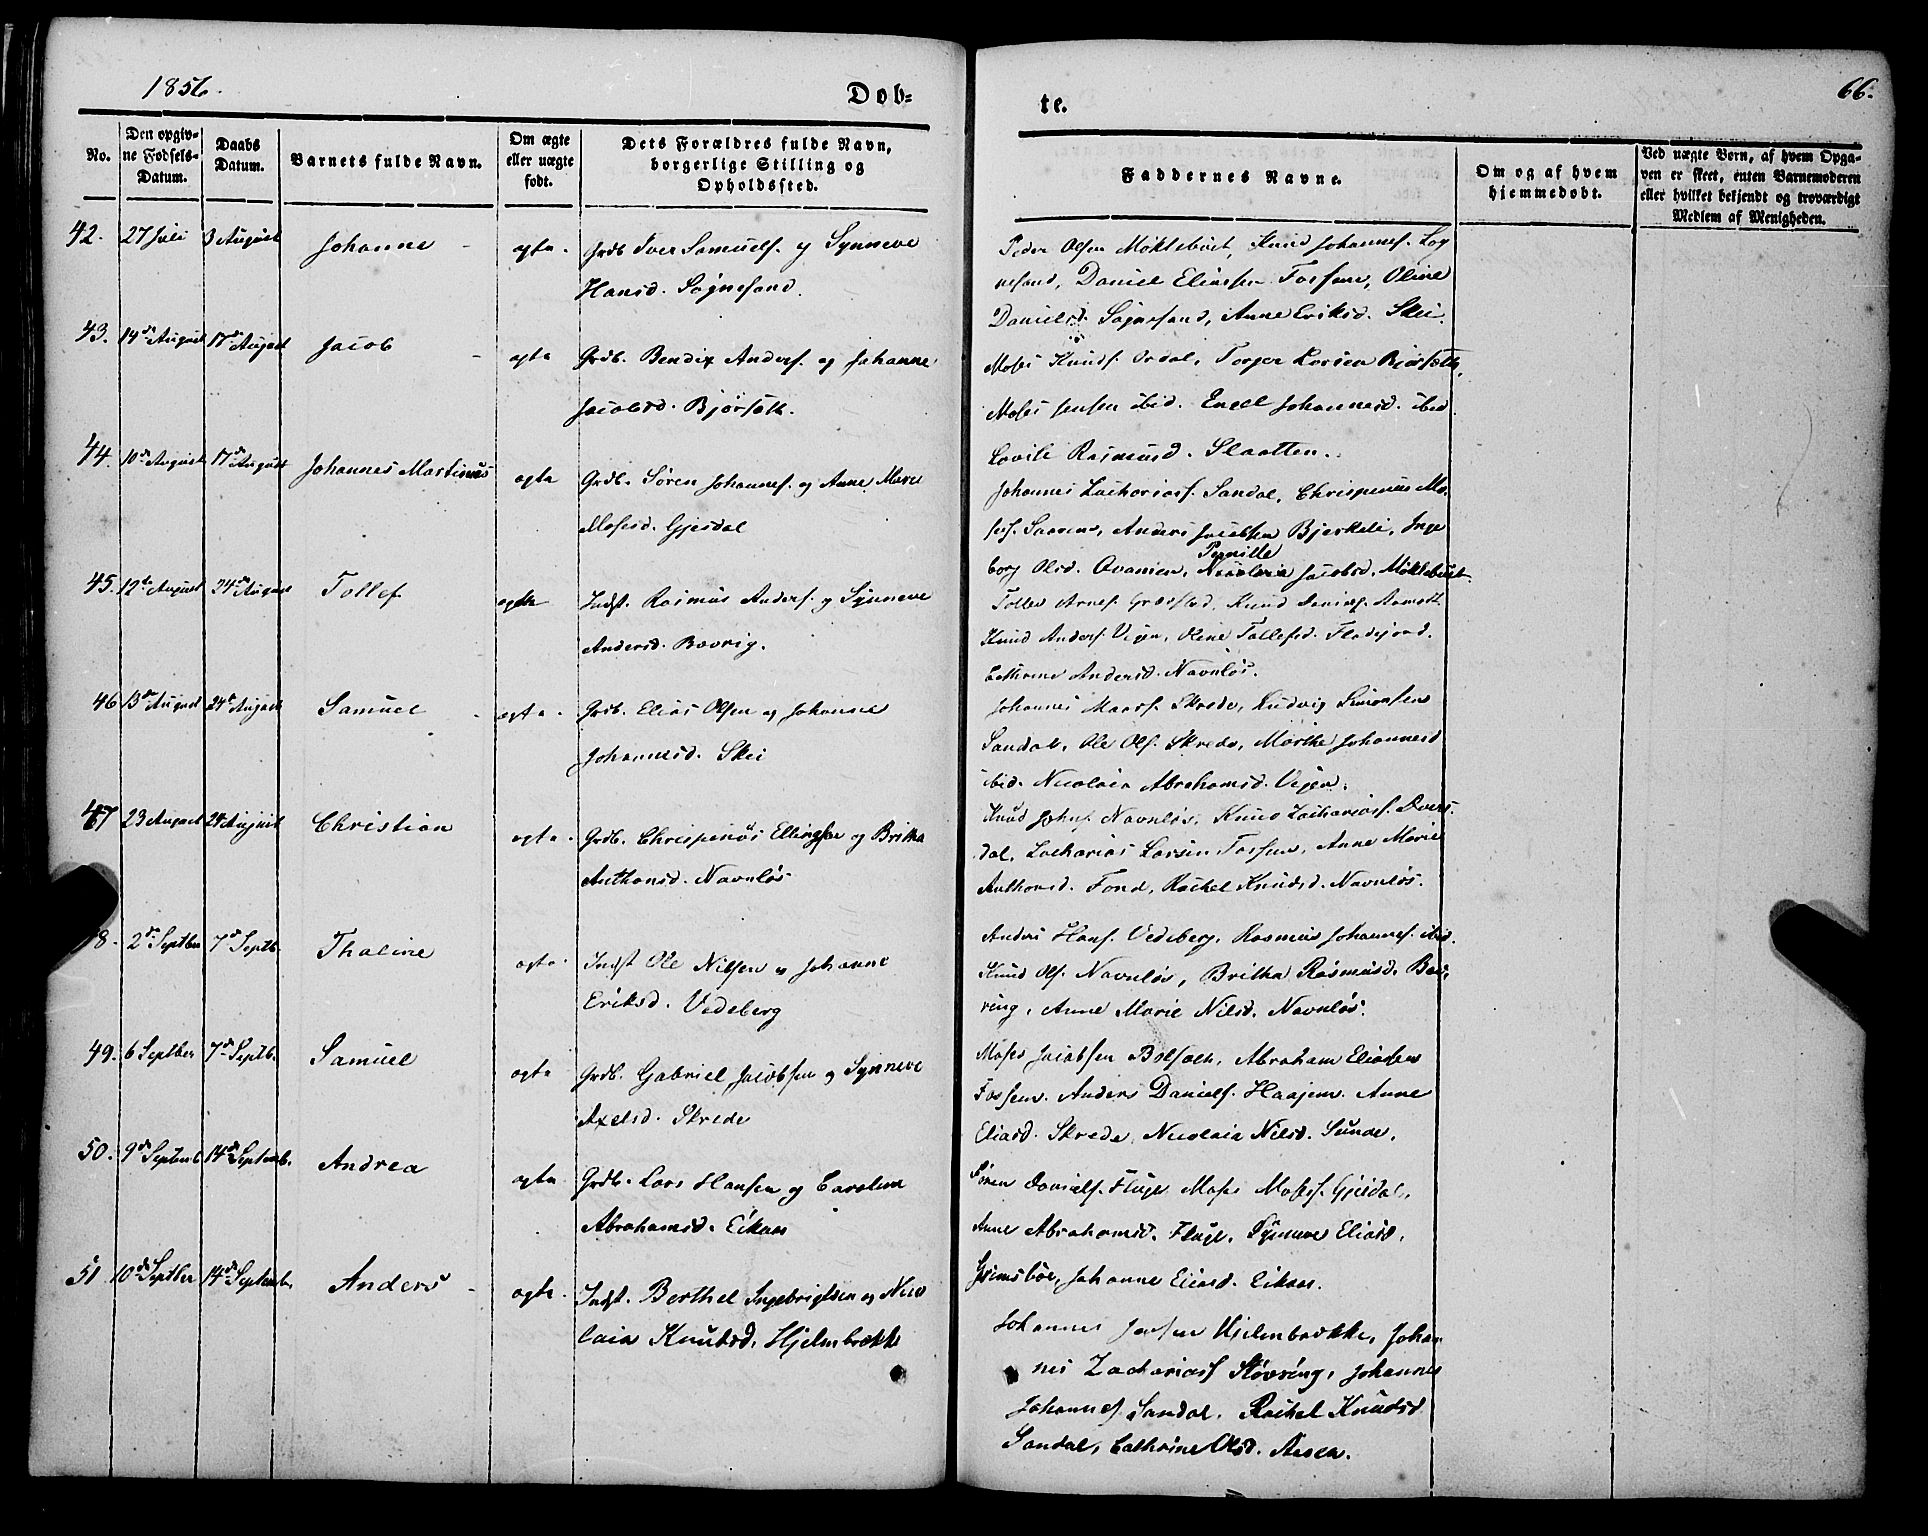 1856.
Døb-
te.
66.
No.
Den opgiv-
ne Fødsels-
Datum.
Daabs
Datum.
Barnets fulde Navn.
Om ægte
eller uægte
født.
Dets Forældres fulde Navn,
borgerlige Stilling og
Opholdssted.
Faddernes Navne.
Om og af hvem
hjemmedøbt.
Ved uægte Børn, af hvem Opga-
ven er skeet, enten Barnemoderen
eller hvilket bekjendt og troværdigt
Medlem af Menigheden.
42. 27 Juli 3 August Johanne - ægte. Grdb. Iver Samuels. og Synneve
Hansd. Sognesand.
Peder Olsen Møklebust, Knud Johannes. Sog
nesand, Daniel Eliassen Fossem, Oline
Danielsd. Sognesand, Anne Eriksd. Skei.
43. 14de August 17de August Jacob - ægte Grdb. Bendix Anders. og Johanne
Jacobsd. Bjørseth.
Moses Knuds. Ordal, Torger Larsen Bjørseth,
Moses Jensen ibid. Engel Johannesd. ibid.
Lovise Rasmusd. Slaatten.
44. 10de August 17de August Johannes Martinus ægte Grdb. Søren Johannes. og Anne Marie
Mosesd. Gjesdal
Johannes Zachariass. Sandal, Chrispenus Mo-
ses. Anders Jacobsen Bjerkeli, Inge
Pernille
borg Olsd. Nicolaia Jacobsd. Møklebust.
45. 12te August 24de August Tollef ægte Indst. Rasmus Anders. og Synneve
Andersd. Bovrig.
Tollev Arnes. Knud
Knud Anders. Oline Tollefsd.
Cathrine Andersd. Navnløs.
46 13de August 24de August Samuel - ægte. Grdb. Elias Olsen og Johanne
Johannesd. Skei
Johannes Skrede, Ludvig Simonsen
Sandal, Ole Ols. Skrede, Marthe Johannesd
ibid. Nicolaia Abrahamsd. Vejen.
47 23 August 24 August Christian ægte. Grdb. Chrispenus Ellingsen og Britha
Anthonsd. Navnløs
Knud Johns. Navnløs, Knud Zachariass. Dvers-
dal, Zacharias Larsen Fossem, Anne Marie
Anthonsd. Fond, Rachel Knudsd. Navnløs.
8. 2de Septber 7de Septb. Thaline ægte. Indst Ole Nilsen og Johanne
Eriksd. Vedeberg
Anders Hans. Vedeberg, Rasmus Johannes. ibid.
Knud Ols. Navnløs, Britha Rasmusd. Bov-
ring, Anne Marie Nilsd. Navnløs.
49. 6 Septber 7de Septb. Samuel ægte Grdb. Gabriel Jacobsen og Synneve
Axelsd. Skrede
Moses Jacobsen Bolseth, Abraham Eliassen
Fossem. Anders Daniels. Haajem. Anne
Eliasd. Skrede, Nicolaia Nilsd. Sunde.
50. 9de Septemb 14de Septemb. Andrea ægte Grdb. Lars Hansen og Caroline
Abrahamsd. Eikaas
Søren Daniels. Fluge Moses Moses. Gjesdal,
Anne Abrahamsd. Fluge, Synneve Eliasd.
Grimsbøe, Johanne Eliasd. Eikaas.
51 10de Septber 14de Septemb. Anders - ægte. Indst. Berthel Ingebrigtsen og Nico
laia Knudsd. Hjelmbrække
Johannes Jensen Hjelmbrække, Johan
nes Zachariass Støvring, Johannes
Johannes. Sandal. Rachel Knudsd
Sandal, Cathrine Olsd. Aasen.